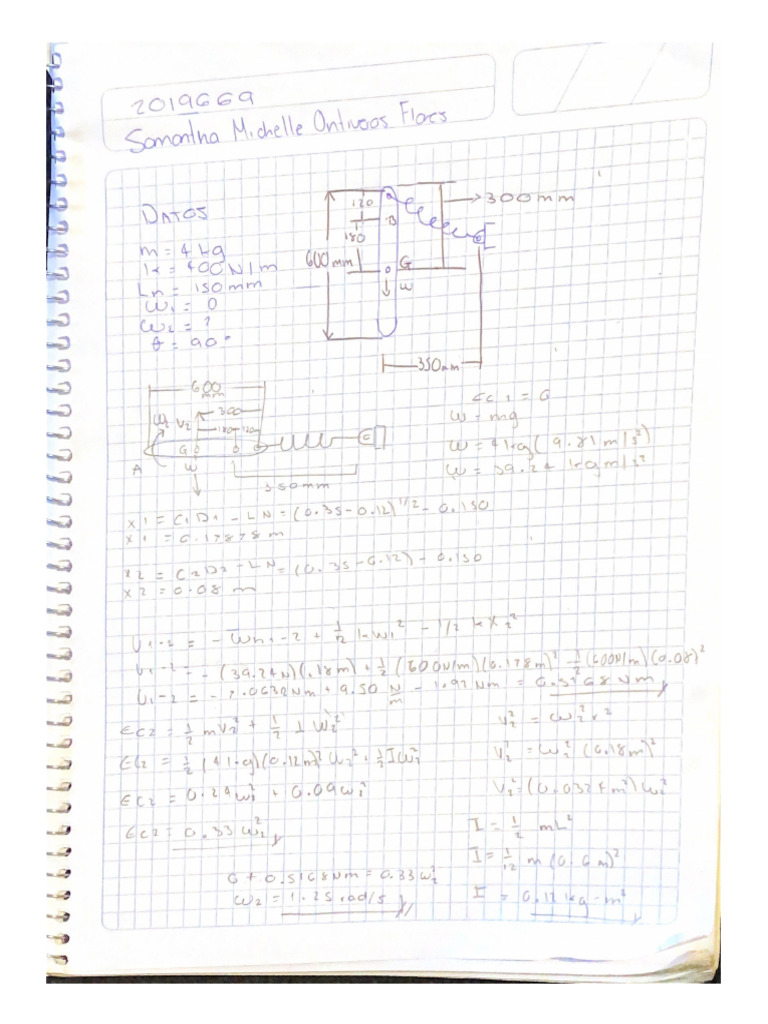 2019669
Samantha Michelle Ontiveos Flores
DATOS
m = 4 kg
k = 400 N/m
Ln = 150 mm
ω1 = 0
ω2 = ?
θ = 90°
120
180
600mm
300mm
D
G
W
350mm
600
mm
W2 V2
300
180 120
G
A
W
C
350mm
Ec1 = 0
W = mg
W = 4kg (9.81 m/s²)
W = 39.24 kg m/s²
x1 = C1D1 - LN = (0.35-0.12)^1/2 - 0.150
x1 = 0.17878 m
x2 = C2D2 - LN = (0.35-0.12) - 0.150
x2 = 0.08 m
U1-2 = - Wh1-2 + 1/2 kw1² - 1/2 kx2²
U1-2 = - (39.24N)(.18m) + 1/2 (600N/m)(0.178m)² - 1/2 (600N/m)(0.08)²
U1-2 = - 7.0632Nm + 9.50 N/m - 1.92 Nm = 0.5168Nm
Ec2 = 1/2 mV2² + 1/2 I W2²
Ec2 = 1/2 (4kg)(0.12m)² W2² + 1/2 Iω2²
Ec2 = 0.24ω2² + 0.09ω2²
Ec2 = 0.33 ω2²
V2² = ω2² r²
V2² = ω2² (0.18m)²
V2² = (0.0324m²) ω2²
I = 1/2 mL²
I = 1/12 m (0.6m)²
I = 0.12 kg-m²
0 + 0.5168Nm = 0.33ω2²
ω2 = 1.25 rad/s